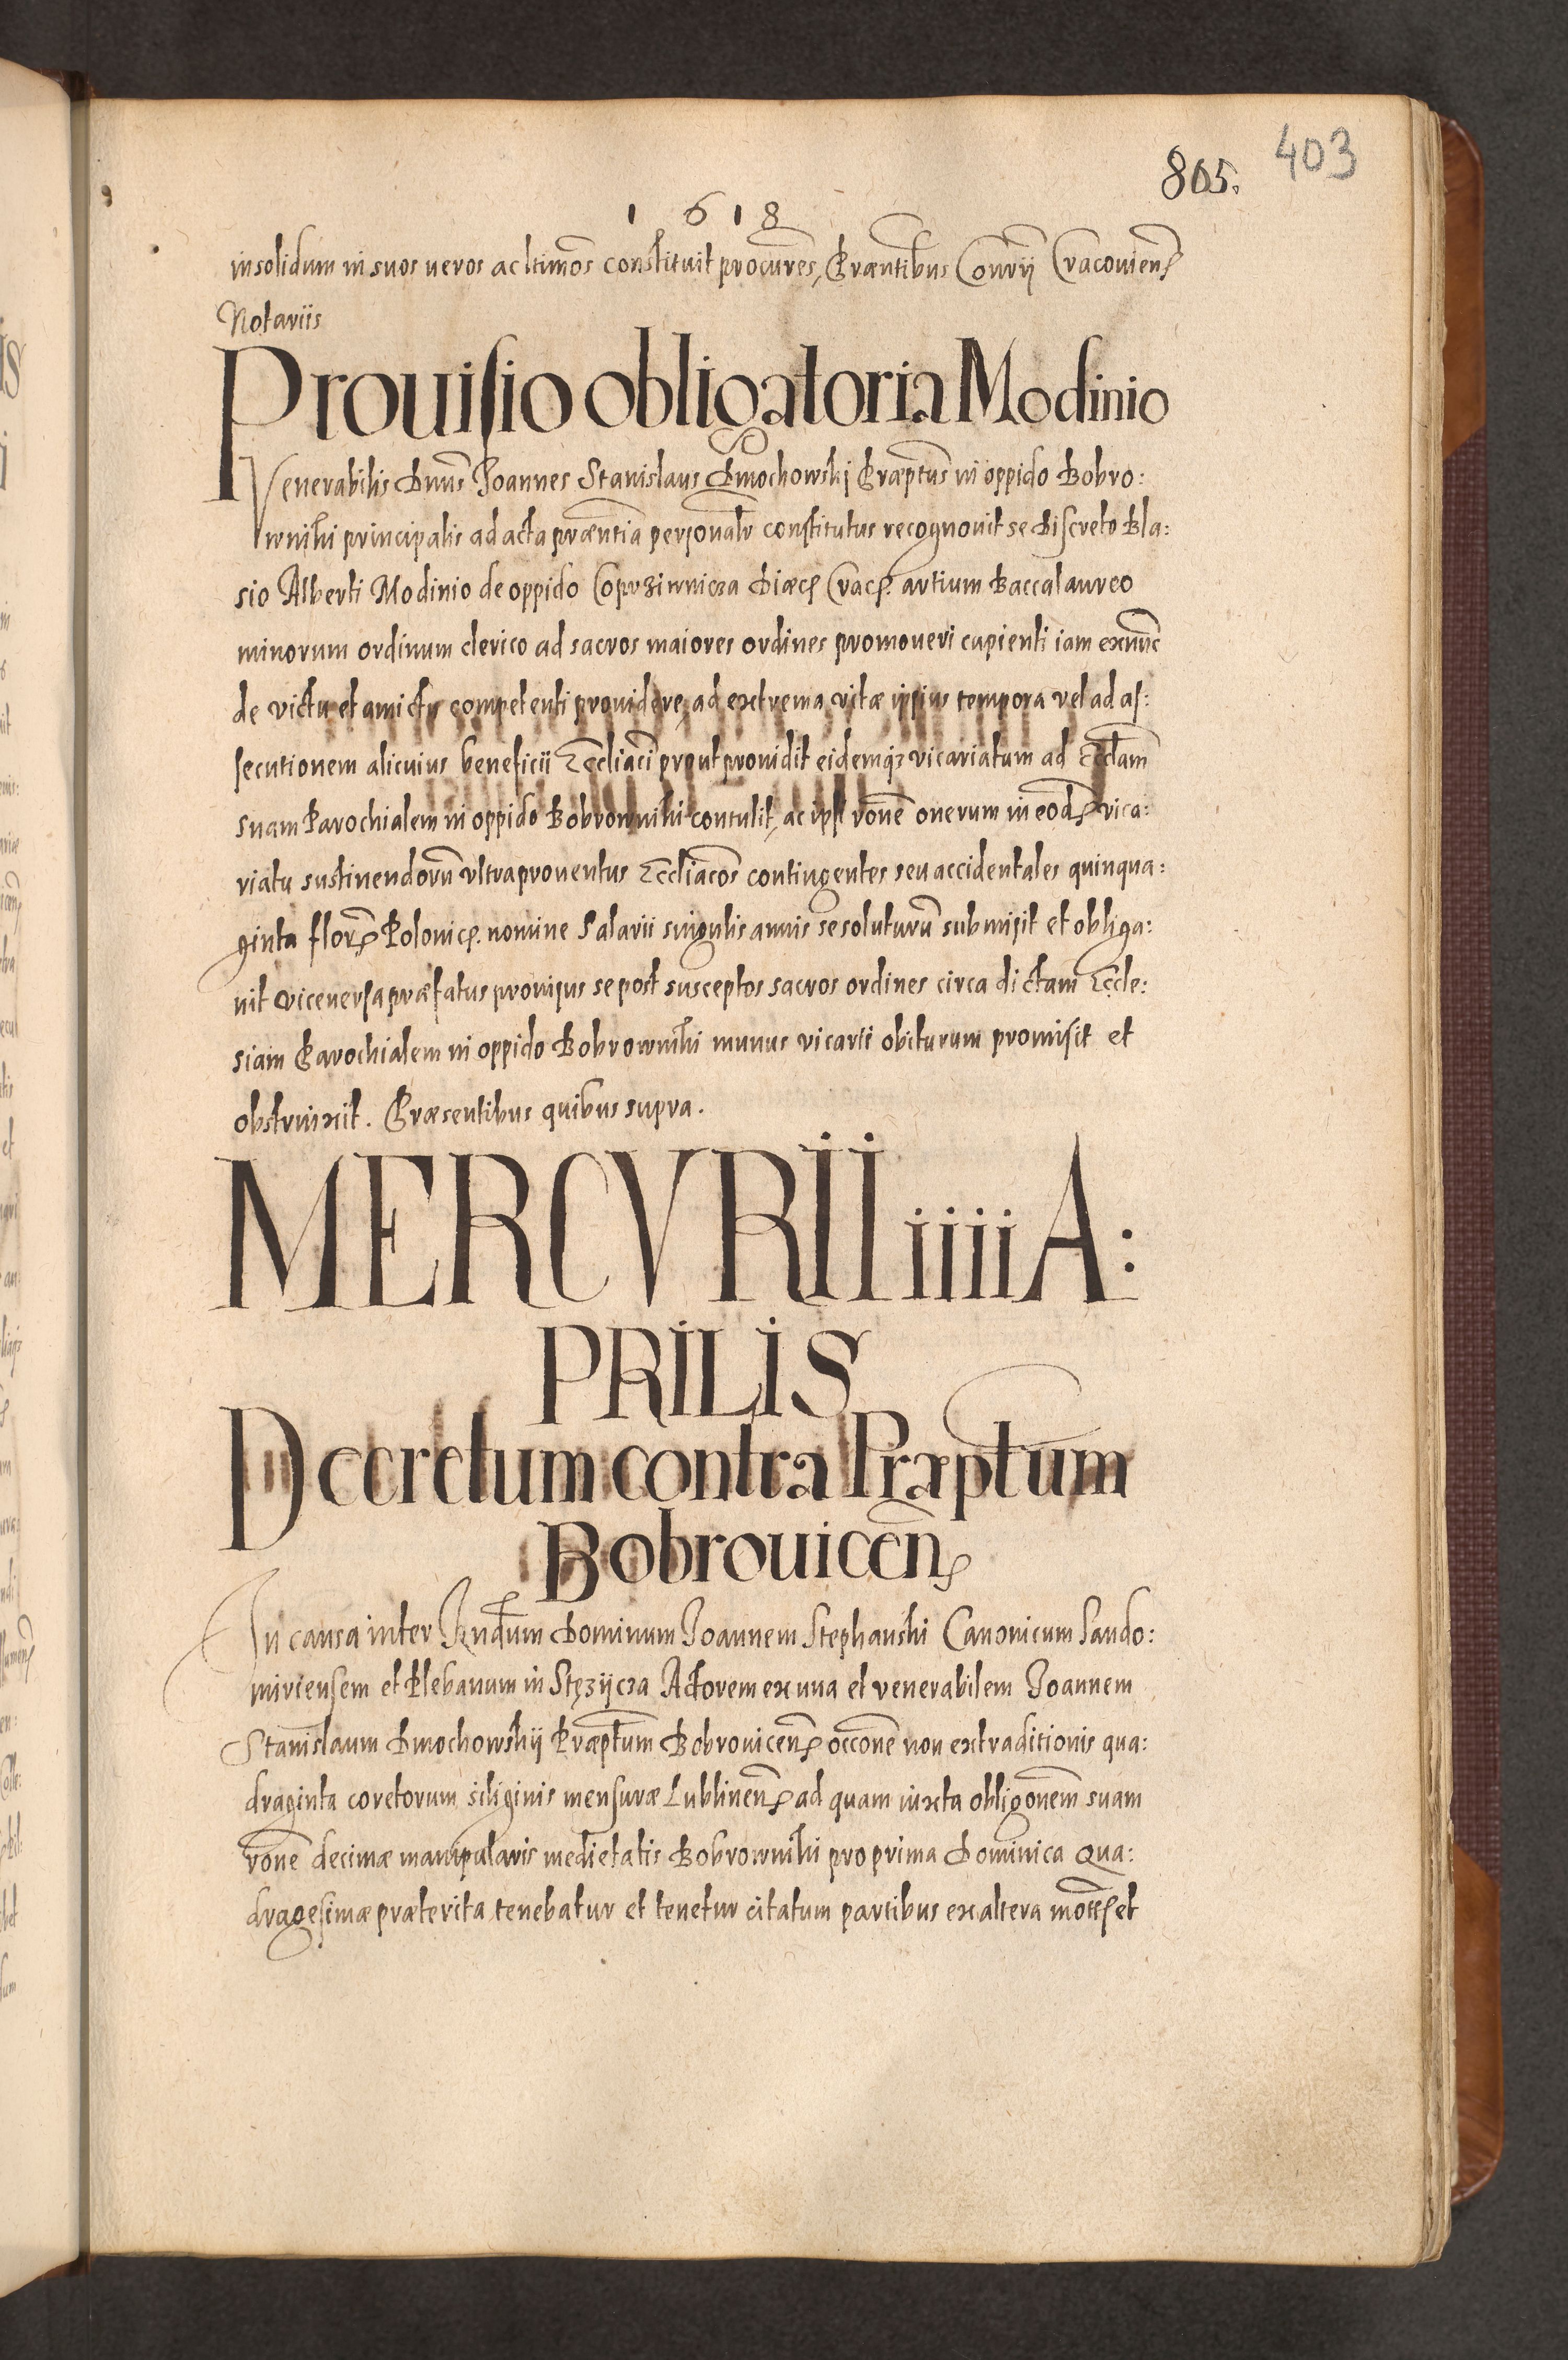 403
805.
1618
insolidum in suos veros ac ltimos constituit procures, Præntibus Conrii Cracouien
Notariis
Prouisio obligatoria Modinio
Venerabilis Dnus Joannes Stanislaus Dmochowskj Præptus in oppido Bobro:
wniki principalis ad acta præntia personalr constitutus recognouit se Discreto Bla:
sio Alberti Modinio de oppido Coprziwnicza Diæc Crac. artium Baccalaureo
minorum ordinum clerico ad sacros maiores ordines promoveri cupienti iam exnuc
de victu et amictu competenti prouidere, ad extrema vitæ ipsius tempora vel ad as:
secutionem alicuius beneficii Eccliaci prout prouidit eidemq3 vicariatum ad Ecclam
suam Parochialem in oppido Bobrownihi contulit, ac ipsi rone onerum in eod vica:
riatu sustinendoru vltra prouentus Eccliacos contingentes seu accidentales quinqua:
ginta flor Polonic. nomine Salarii singulis annis se soluturu submisit et obliga:
uit vice versa præfatus prouisus se post susceptos sacros ordines circa dictam Eccle:
siam Parochialem in oppido Bobrowniki munus vicarii obiturum promisit et
obstrinxit. Præsentibus quibus supra.
MERCVRII iiii A:
PRILIS
Decretum contra Præptum
Bobrouicen
In causa inter Rndum Dominum Joannem Stephanski Canonicum Sando:
miriensem et Plebanum in Stęzijcza Actorem ex una et venerabilem Joannem
Stanislaum Dmochowskij Præptum Bobrouicen occone non extraditionis qua:
draginta coretorum siliginis mensuræ Lublinen ad quam iuxta obligonem suam
rone decimæ manipularis medietatis Bobrowniki pro prima Dominica Qua:
dragesimæ præterita tenebatur et tenetur citatum partibus ex altera moten et